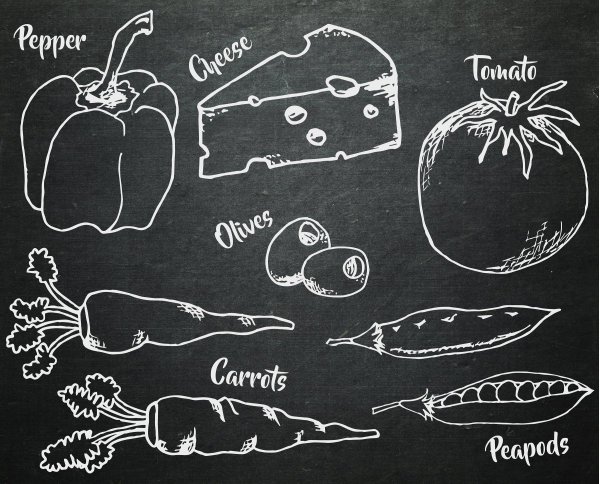 Pepper
Cheese
Tomato
Olives
Carrots
Peapods